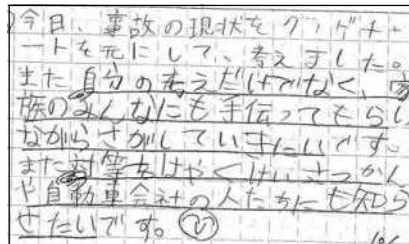 今日、事故の現状をクリゲチャ
ートを元にして、考えました。
また自分の考えだけでなく、家
族のみんなにも手伝ってもらい
ながらさがしていきたいです。
また対策をはやくけいさつかん
や自動車会社の人たちにも知ら
せたいです。